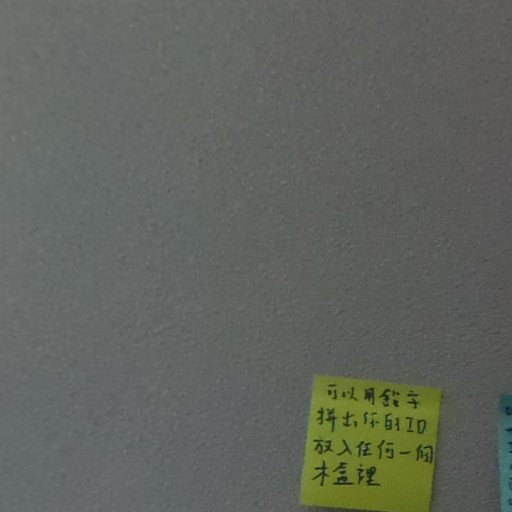 可以用鉛字
拼出你的ID
放入任何一個
木盒裡